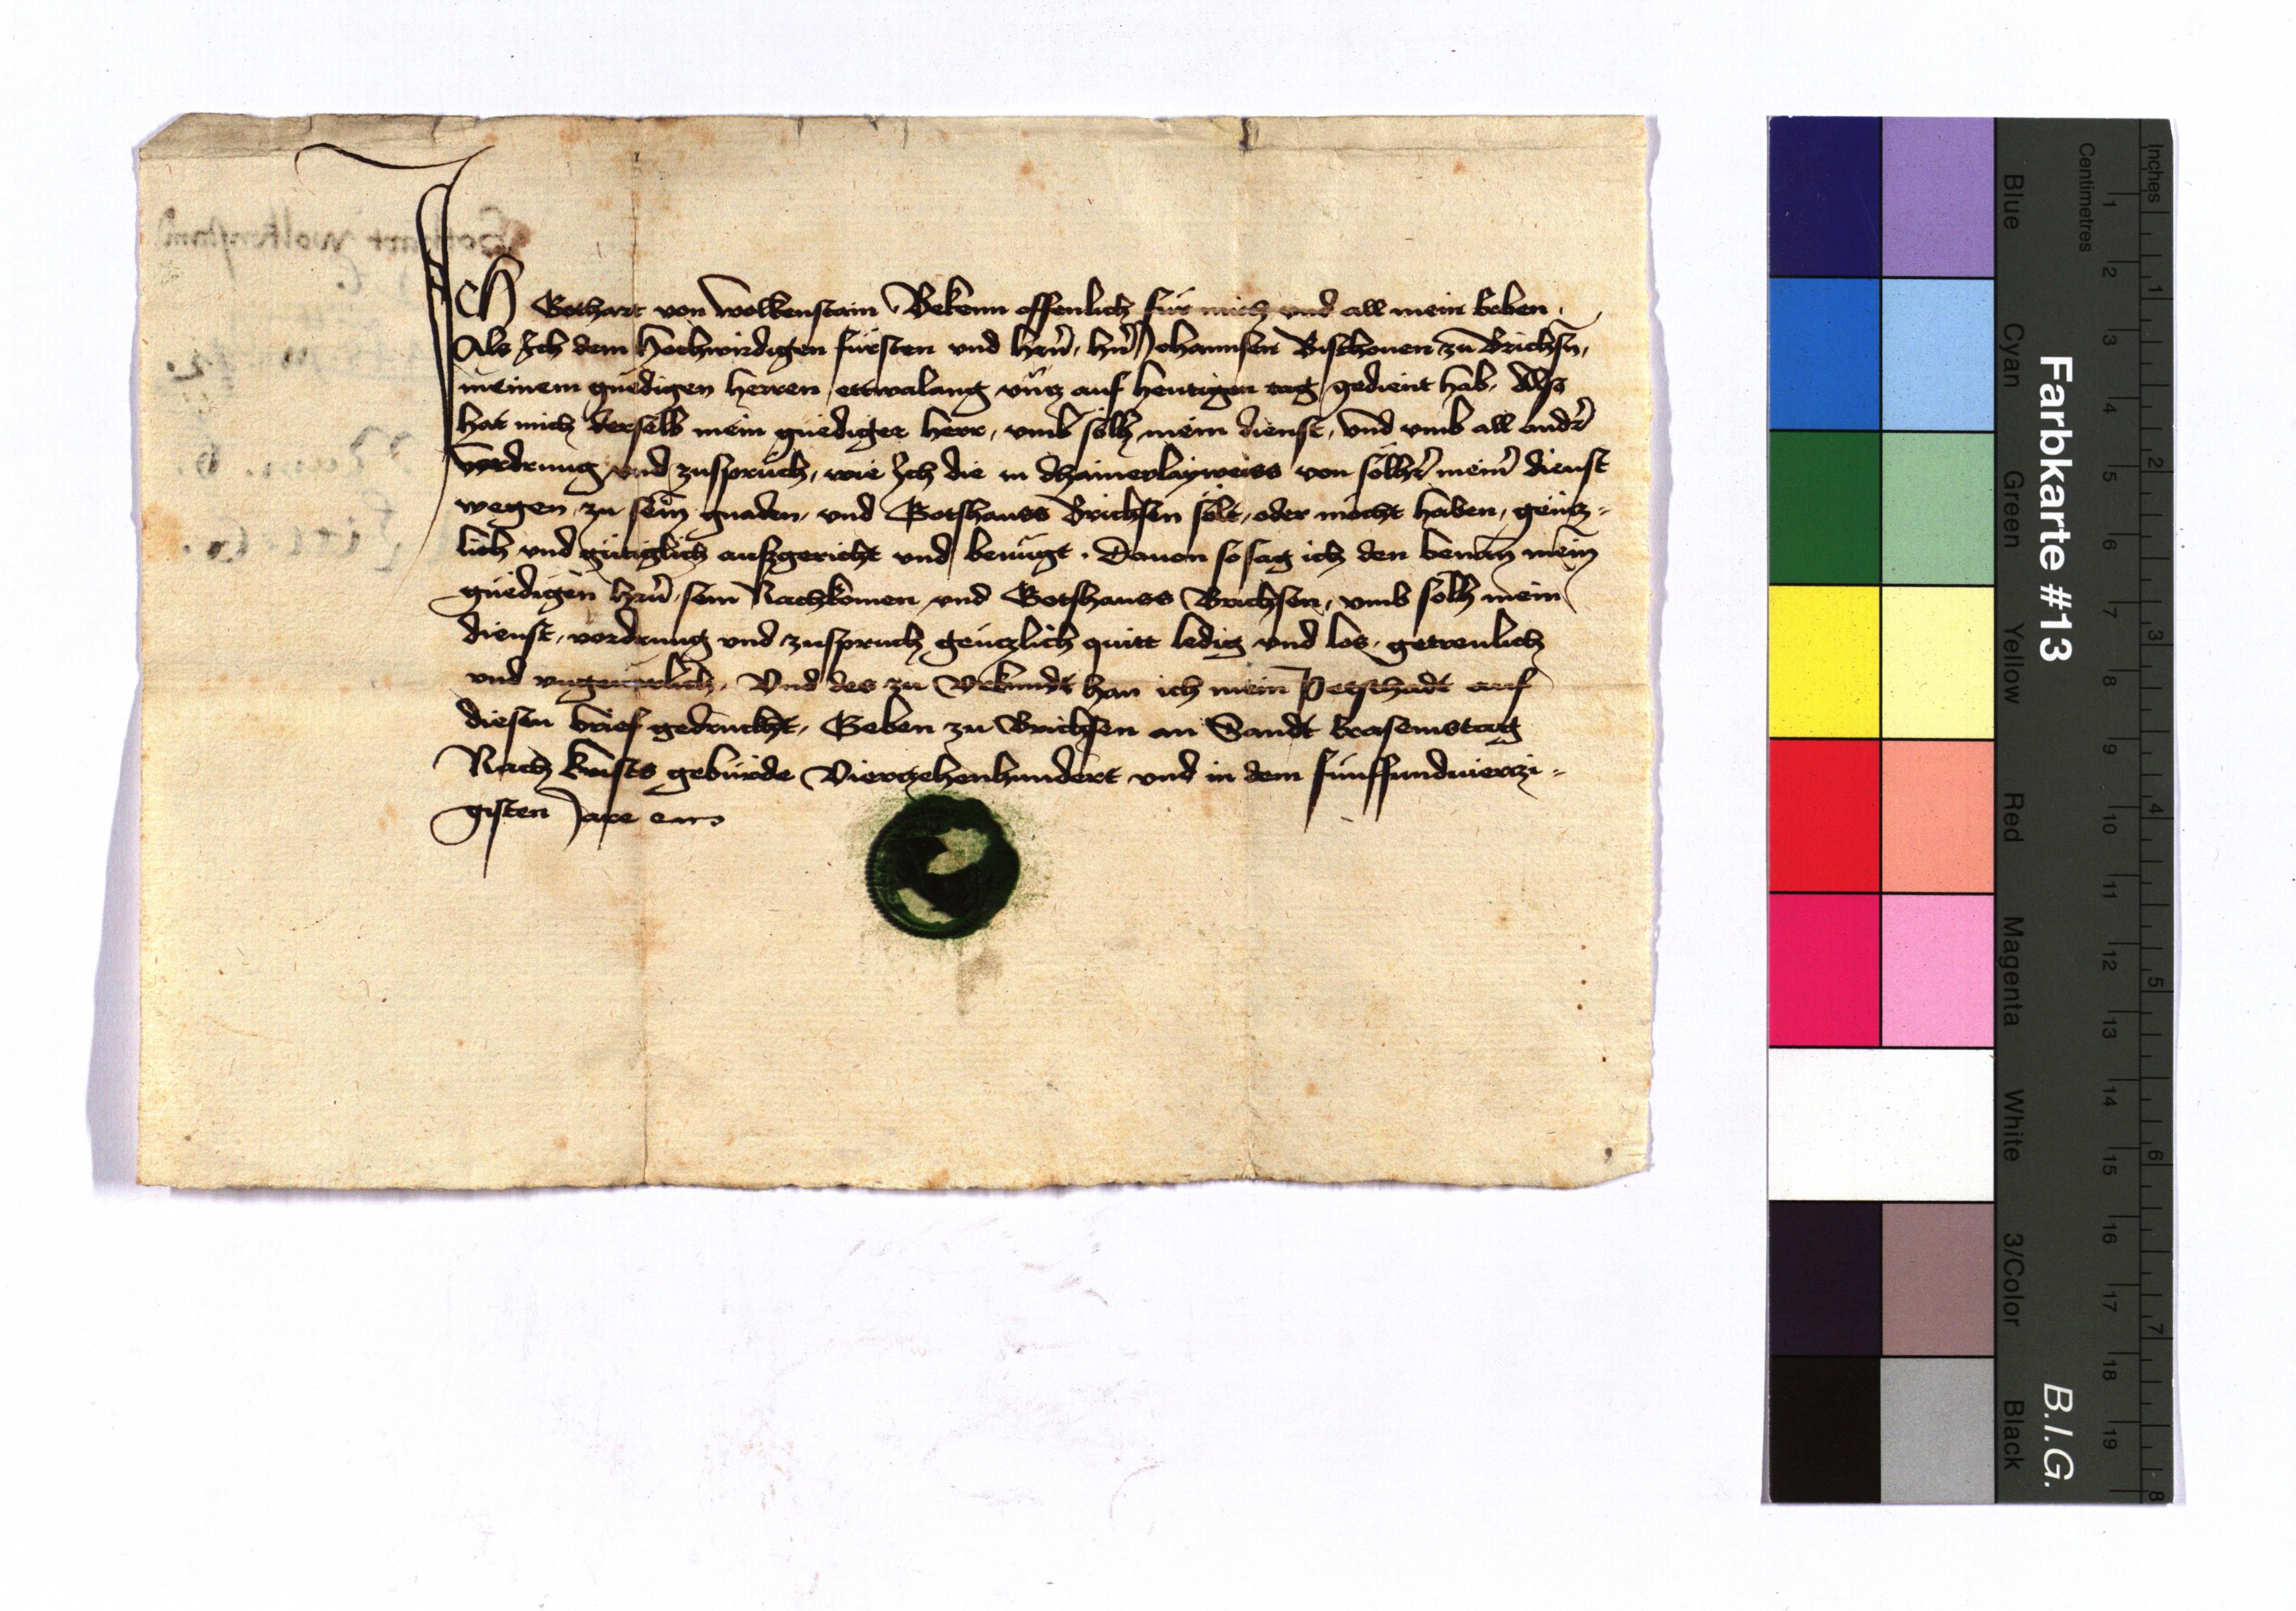 ICH Gothart von Wolkenstain Bekenn offenlich für mich und all mein Erben.
Als Ich dem Hochwirdigen fürsten und hern, hern Johannsen Bischouen zu Brichsn,
meinem gnedigen herren ettwalang vntz auf heutigen tag gedient hab. Also
hat mich derselb mein gnediger herr, vmb sölh mein dienst, vnd vmb all andr
vordrung vnd zuspruch, wie Ich die in dhainerlayweiss von sölhr meinr dienst
wegen, zu sein gnaden, vnd Gotshauss Brichsen solt, oder möcht haben, gentz-
lich vnd gütiglich aufzgericht vnd benügt. Dauon so sag ich den benan mein
gnedigen hern, sein Nachkomen vnd Gotshauss Brichsen, vmb sölh mein
dienst, vordrung vnd zuspruch gentzlich quitt ledig vnd los, getreulich
vnd vngeuerlich. Vnd des zu Vrkundt han ich mein Petschadt auf
diesen brief gedruckht, Geben zu Brichsen an Sandt Erasemstag
Nach krists gebürde Viertzehenhundert vnd in dem fünffundvierzi-
gisten Jare
Gothart Wolkenstain
Farbkarte #13
B.I.G.
Blue
Cyan
Green
Yellow
Red
Magenta
White
3/Color
Black
Centimetres
1 2 3 4 5 6 7 8 9 10 11 12 13 14 15 16 17 18 19
Inches
1 2 3 4 5 6 7 8